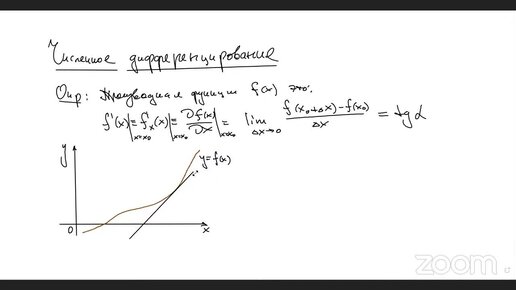 Численное дифференцирование
Опр: Производная функции f(x) это:
f'(x)|x=x₀ = f'ₓ(x)|x=x₀ = ∂f(x)/∂x|x=x₀ = lim Δx→0 (f(x₀+Δx)-f(x₀))/Δx = tg α
y
y=f(x)
0
x
zoom